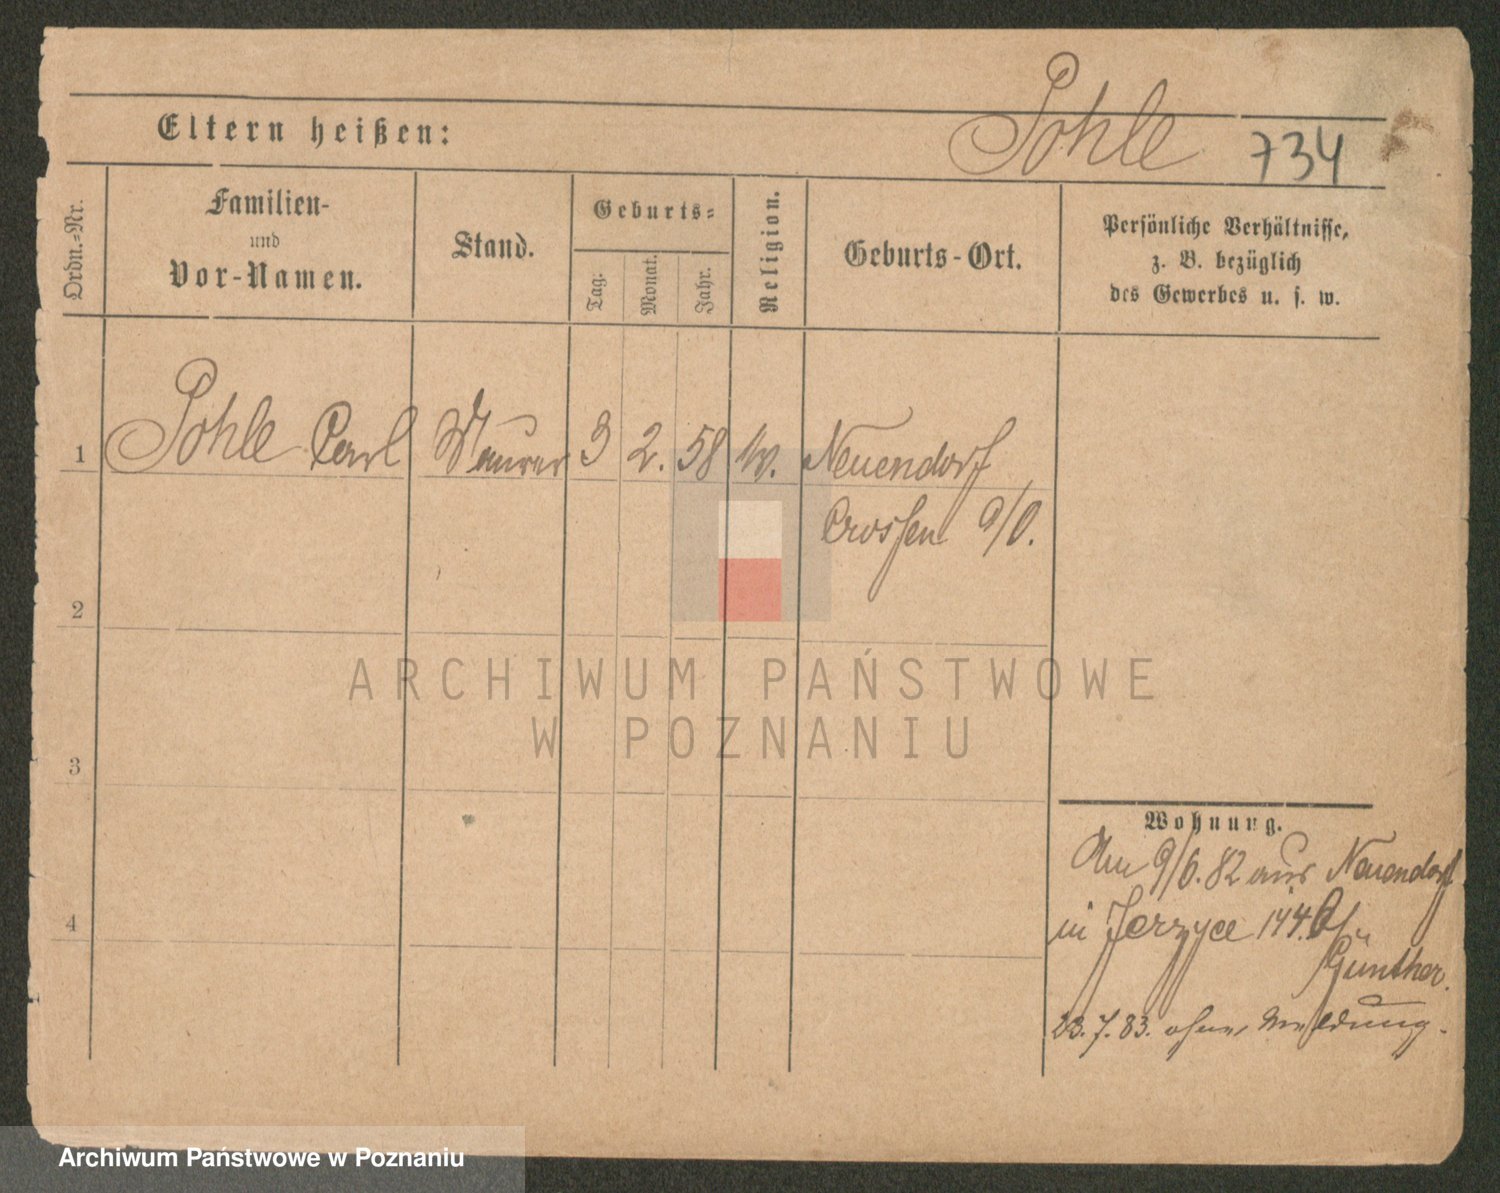 Pohle
734
Eltern heißen:
Ordn.-Nr.
Familien-
und
Vor-Namen.
Stand.
Geburts-
Tag.
Monat.
Jahr.
Religion.
Geburts-Ort.
Persönliche Verhältnisse,
z. B. bezüglich
des Gewerbes u. s. w.
1 Pohle Carl Maurer 3 2. 58 Neuendorf
Crossen a/O.
2
ARCHIWUM PAŃSTWOWE
W POZNANIU
3
4
Wohnung.
Am 9/6. 82 aus Neuendorf
in Jerzyce 144.
Günther.
23. 7. 83. ohne Meldung.
Archiwum Państwowe w Poznaniu